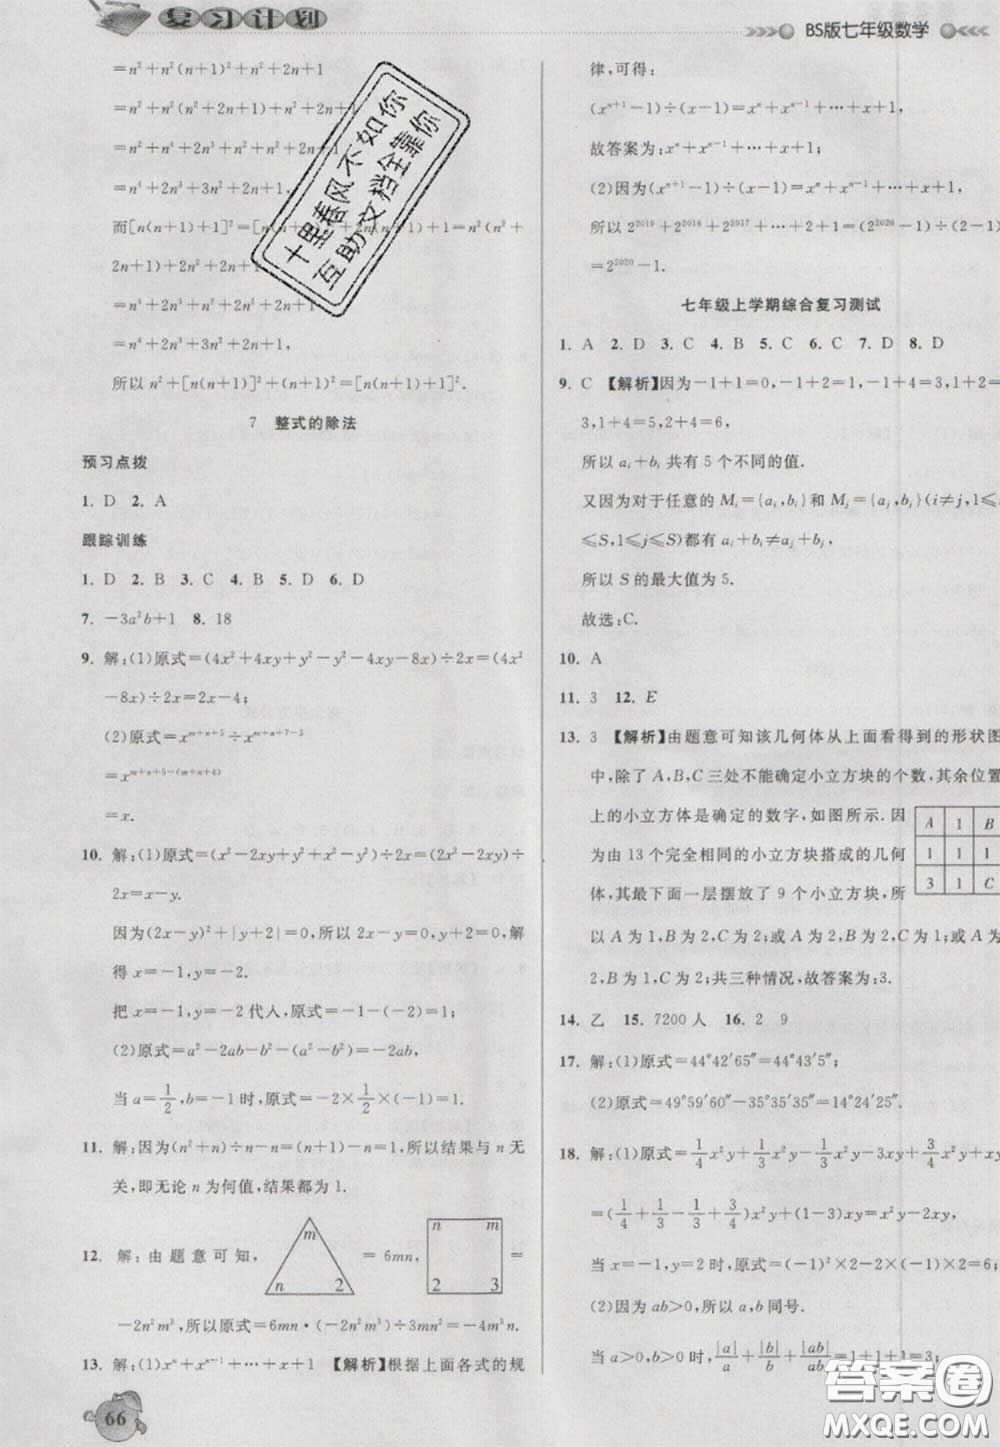 复习计划
BS版七年级数学
=n²+n²(n+1)²+n²+2n+1
=n²+n²(n²+2n+1)+n²+2n+1
=n²+n⁴+2n³+n²+n²+2n+1
=n⁴+2n³+3n²+2n+1
而[n(n+1)+1]²=[n(n+1)]²+2n(n+1)+1=n²(n²+
2n+1)+2n²+2n+1
=n⁴+2n³+n²+2n²+2n+1
=n⁴+2n³+3n²+2n+1
所以n²+[n(n+1)]²+(n+1)²=[n(n+1)+1]².
7 整式的除法
预习点拨
1. D 2. A
跟踪训练
1. D 2. B 3. C 4. B 5. D 6. D
7. -3a²b+1 8. 18
9. 解:(1)原式=(4x²+4xy+y²-y²-4xy-8x)÷2x=(4x²
-8x)÷2x=2x-4;
(2)原式=xᵐ⁺ⁿ⁺⁵÷xᵐ⁺ⁿ⁺⁷⁻³
=xᵐ⁺ⁿ⁺⁵⁻⁽ᵐ⁺ⁿ⁺⁴⁾
=x.
10. 解:(1)原式=(x²-2xy+y²+x²-y²)÷2x=(2x²-2xy)÷
2x=x-y.
因为(2x-y)²+|y+2|=0,所以2x-y=0,y+2=0,解
得x=-1,y=-2.
把x=-1,y=-2代入,原式=-1-(-2)=1;
(2)原式=a²-2ab-b²-(a²-b²)=-2ab,
当a=1/2,b=-1时,原式=-2×1/2×(-1)=1.
11. 解:因为(n²+n)÷n-n=n+1-n=1,所以结果与n无
关,即无论n为何值,结果都为1.
12. 解:由题意可知, m n 2 =6mn, n m 2 3 =
-2n²m³,所以原式=6mn·(-2n²m³)÷3mn=-4m³n².
13. 解:(1)xⁿ+xⁿ⁻¹+…+x+1 【解析】根据上面各式的规
66
律,可得:
(xⁿ⁺¹-1)÷(x-1)=xⁿ+xⁿ⁻¹+…+x+1,
故答案为:xⁿ+xⁿ⁻¹+…+x+1;
(2)因为(xⁿ⁺¹-1)÷(x-1)=xⁿ+xⁿ⁻¹+…+x+1,
所以2²⁰¹⁹+2²⁰¹⁸+2²⁰¹⁷+…+2+1=(2²⁰²⁰-1)÷(2-1)
=2²⁰²⁰-1.
七年级上学期综合复习测试
1. A 2. D 3. C 4. B 5. C 6. C 7. D 8. D
9. C 【解析】因为-1+1=0,-1+2=1,-1+4=3,1+2=
3,1+4=5,2+4=6,
所以aᵢ+bᵢ共有5个不同的值.
又因为对于任意的Mᵢ={aᵢ,bᵢ}和Mⱼ={aⱼ,bⱼ}(i≠j,1≤
≤S,1≤j≤S)都有aᵢ+bᵢ≠aⱼ+bⱼ,
所以S的最大值为5.
故选:C.
10. A
11. 3 12. E
13. 3 【解析】由题意可知该几何体从上面看得到的形状图
中,除了A,B,C三处不能确定小立方块的个数,其余位置
上的小立方体是确定的数字,如图所示. 因
为由13个完全相同的小立方块搭成的几何
体,其最下面一层摆放了9个小立方块,所
A 1 B
1 1 1
3 1 C
以A为1,B为2,C为2;或A为2,B为2,C为1;或A
2,B为1,C为2;共三种情况,故答案为:3.
14. 乙 15. 7200人 16. 2 9
17. 解:(1)原式=44°42′65″=44°43′5″;
(2)原式=49°59′60″-35°35′35″=14°24′25″.
18. 解:(1)原式=1/4x²y+1/3x²y+xy-1/3x²y-3xy+3/4x²y
=(1/4+1/3-1/3+3/4)x²y+(1-3)xy=x²y-2xy,
当x=-1,y=2时,原式=(-1)²×2-2×(-1)×2=6;
(2)因为ab>0,所以a,b同号.
当a>0,b>0时,|a|/a+|b|/b+|ab|/ab=1+1+1=3;
十里春风不如你
互助文档全靠你
答案圈
MXQE.COM